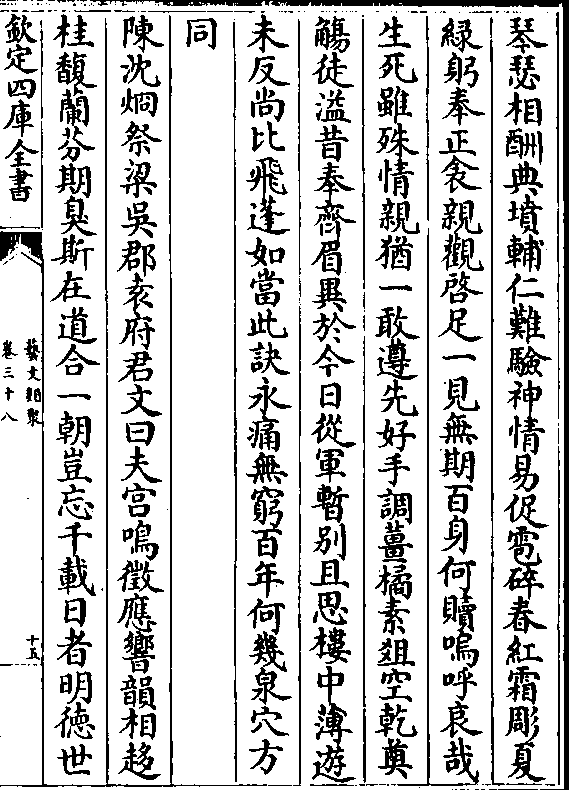 琴瑟相酬典墳輔仁難驗神情易促雹碎春紅霜彫夏
綠躬奉正衾親觀啓足一見無期百身何贖嗚呼哀哉
生死雖殊情親猶一敢遵先好手調薑橘素爼空乾奠
觴徒溢昔奉齊眉異於今日從軍暫别且思樓中薄遊
未反尚比飛蓬如當此訣永痛無窮百年何幾泉穴方
同
陳沈烱祭梁吳郡袁府君文曰夫宫鳴徵應響韻相趍
桂馥蘭芬期臭斯在道合一朝豈忘千載日者明徳世
欽定四庫全書
藝文類聚
卷三十八
十五